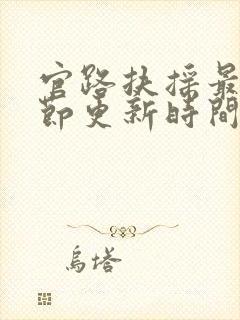 官路扶搖最
節更新時間
烏塔